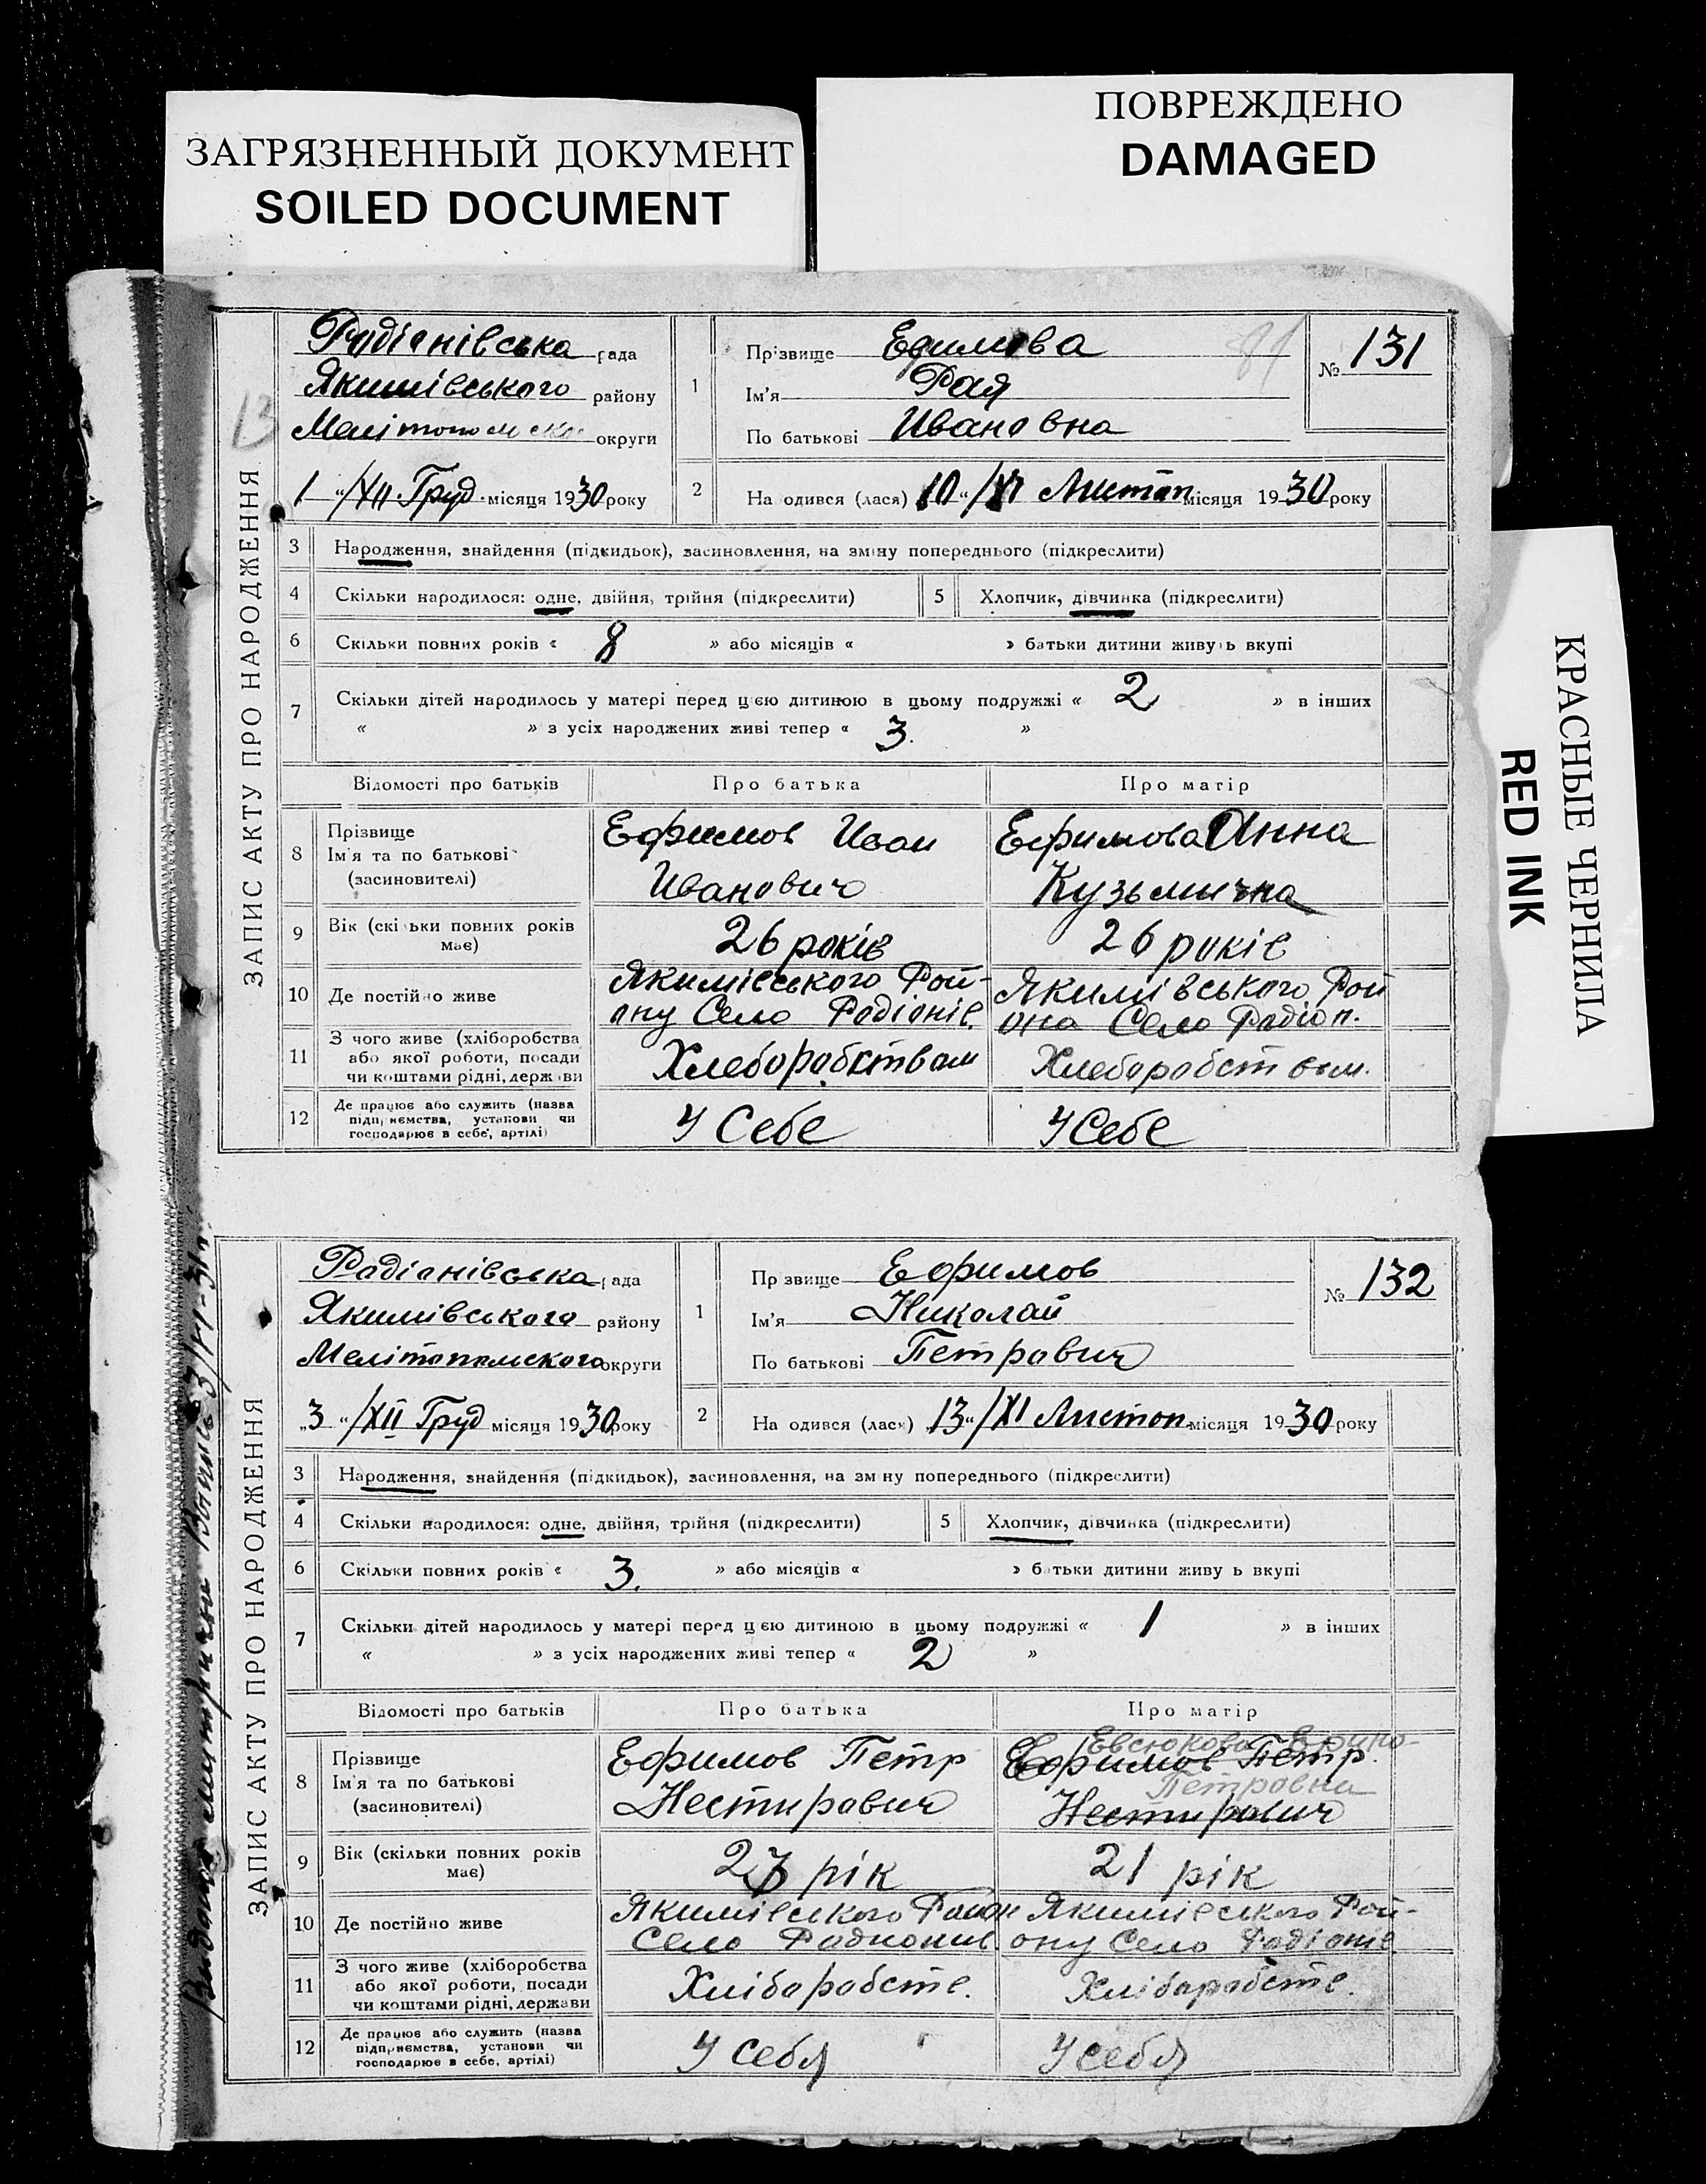 ЗАГРЯЗНЕННЫЙ ДОКУМЕНТ
SOILED DOCUMENT
ПОВРЕЖДЕНО
DAMAGED
КРАСНЫЕ ЧЕРНИЛА
RED INK
ЗАПИС АКТУ ПРО НАРОДЖЕННЯ
13
Радіанівська рада
Якимівського району
округи
1 "/XII Груд. місяця 1930 року
1
Прізвище Ефимова
Ім'я Рая
По батькові Ивановна
81
№ 131
2
На одився (лася) 10 "/XI Листоп місяця 1930 року
3 Народження, знайдення (підкидьок), засиновлення, на зміну попереднього (підкреслити)
4 Скільки народилося: одне, двійня, трійня (підкреслити)
5 Хлопчик, дівчинка (підкреслити)
6 Скільки повних років « 8 » або місяців « » батьки дитини живуть вкупі
7 Скільки дітей народилось у матері перед цією дитиною в цьому подружжі « 2 » в інших
« » з усіх народжених живі тепер « 3. »
Відомості про батьків Про батька Про матір
8 Прізвище
Ім'я та по батькові
(засиновителі)
Ефимов Иван
Иванович
Ефимова Анна
Кузьмична
9 Вік (скі ьки повних років
має)
26 років
26 років
10 Де постійно живе
Якимівського Рой-
ону Село Радіонів.
Якимівського Рой
она Село Радіон.
11 З чого живе (хліборобства
або якої роботи, посади
чи коштами рідні, держави
Хлеборобством
Хлеборобством.
12 Де працює або служить (назва
підприємства, установи чи
господарює в себе, артілі)
У Себе
У Себе
ЗАПИС АКТУ ПРО НАРОДЖЕННЯ
Радіанівська рада
Якимівського району
Мелітопольского округи
„3 "/XII Груд місяця 1930 року
1
Пр звище Ефимов
Ім'я Николай
По батькові Петрович
№ 132
2
На одився (лася) 13 "/XI Листоп. місяця 1930 року
3 Народження, знайдення (підкидьок), засиновлення, на зм ну попереднього (підкреслити)
4 Скільки народилося: одне, двійня, трійня (підкреслити)
5 Хлопчик, дівчинка (підкреслити)
6 Скільки повних років « 3. » або місяців « » б тьки дитини живу ь вкупі
7 Скільки дітей народилось у матері перед цією дитиною в цьому подружжі « 1 » в інших
« » з усіх народжених живі тепер « 2 »
Відомості про батьків Про батька Про матір
8 Прізвище
Ім'я та по батькові
(засиновителі)
Ефимов Петр
Нестирович
Евсюкова
Ефимов Петр.
Петровна
Нестирович
9 Вік (скільки повних років
має)
27 рік
21 рік
10 Де постійно живе
Якимівського Район
Село Радионив.
Якимівського Рой-
ону Село Радіонів
11 З чого живе (хліборобства
або якої роботи, посади
чи коштами рідні, держави
Хліборобств.
Хліборобств.
12 Де працює або служить (назва
підприємства, установи чи
господарює в себе, артілі)
У себя
У себя